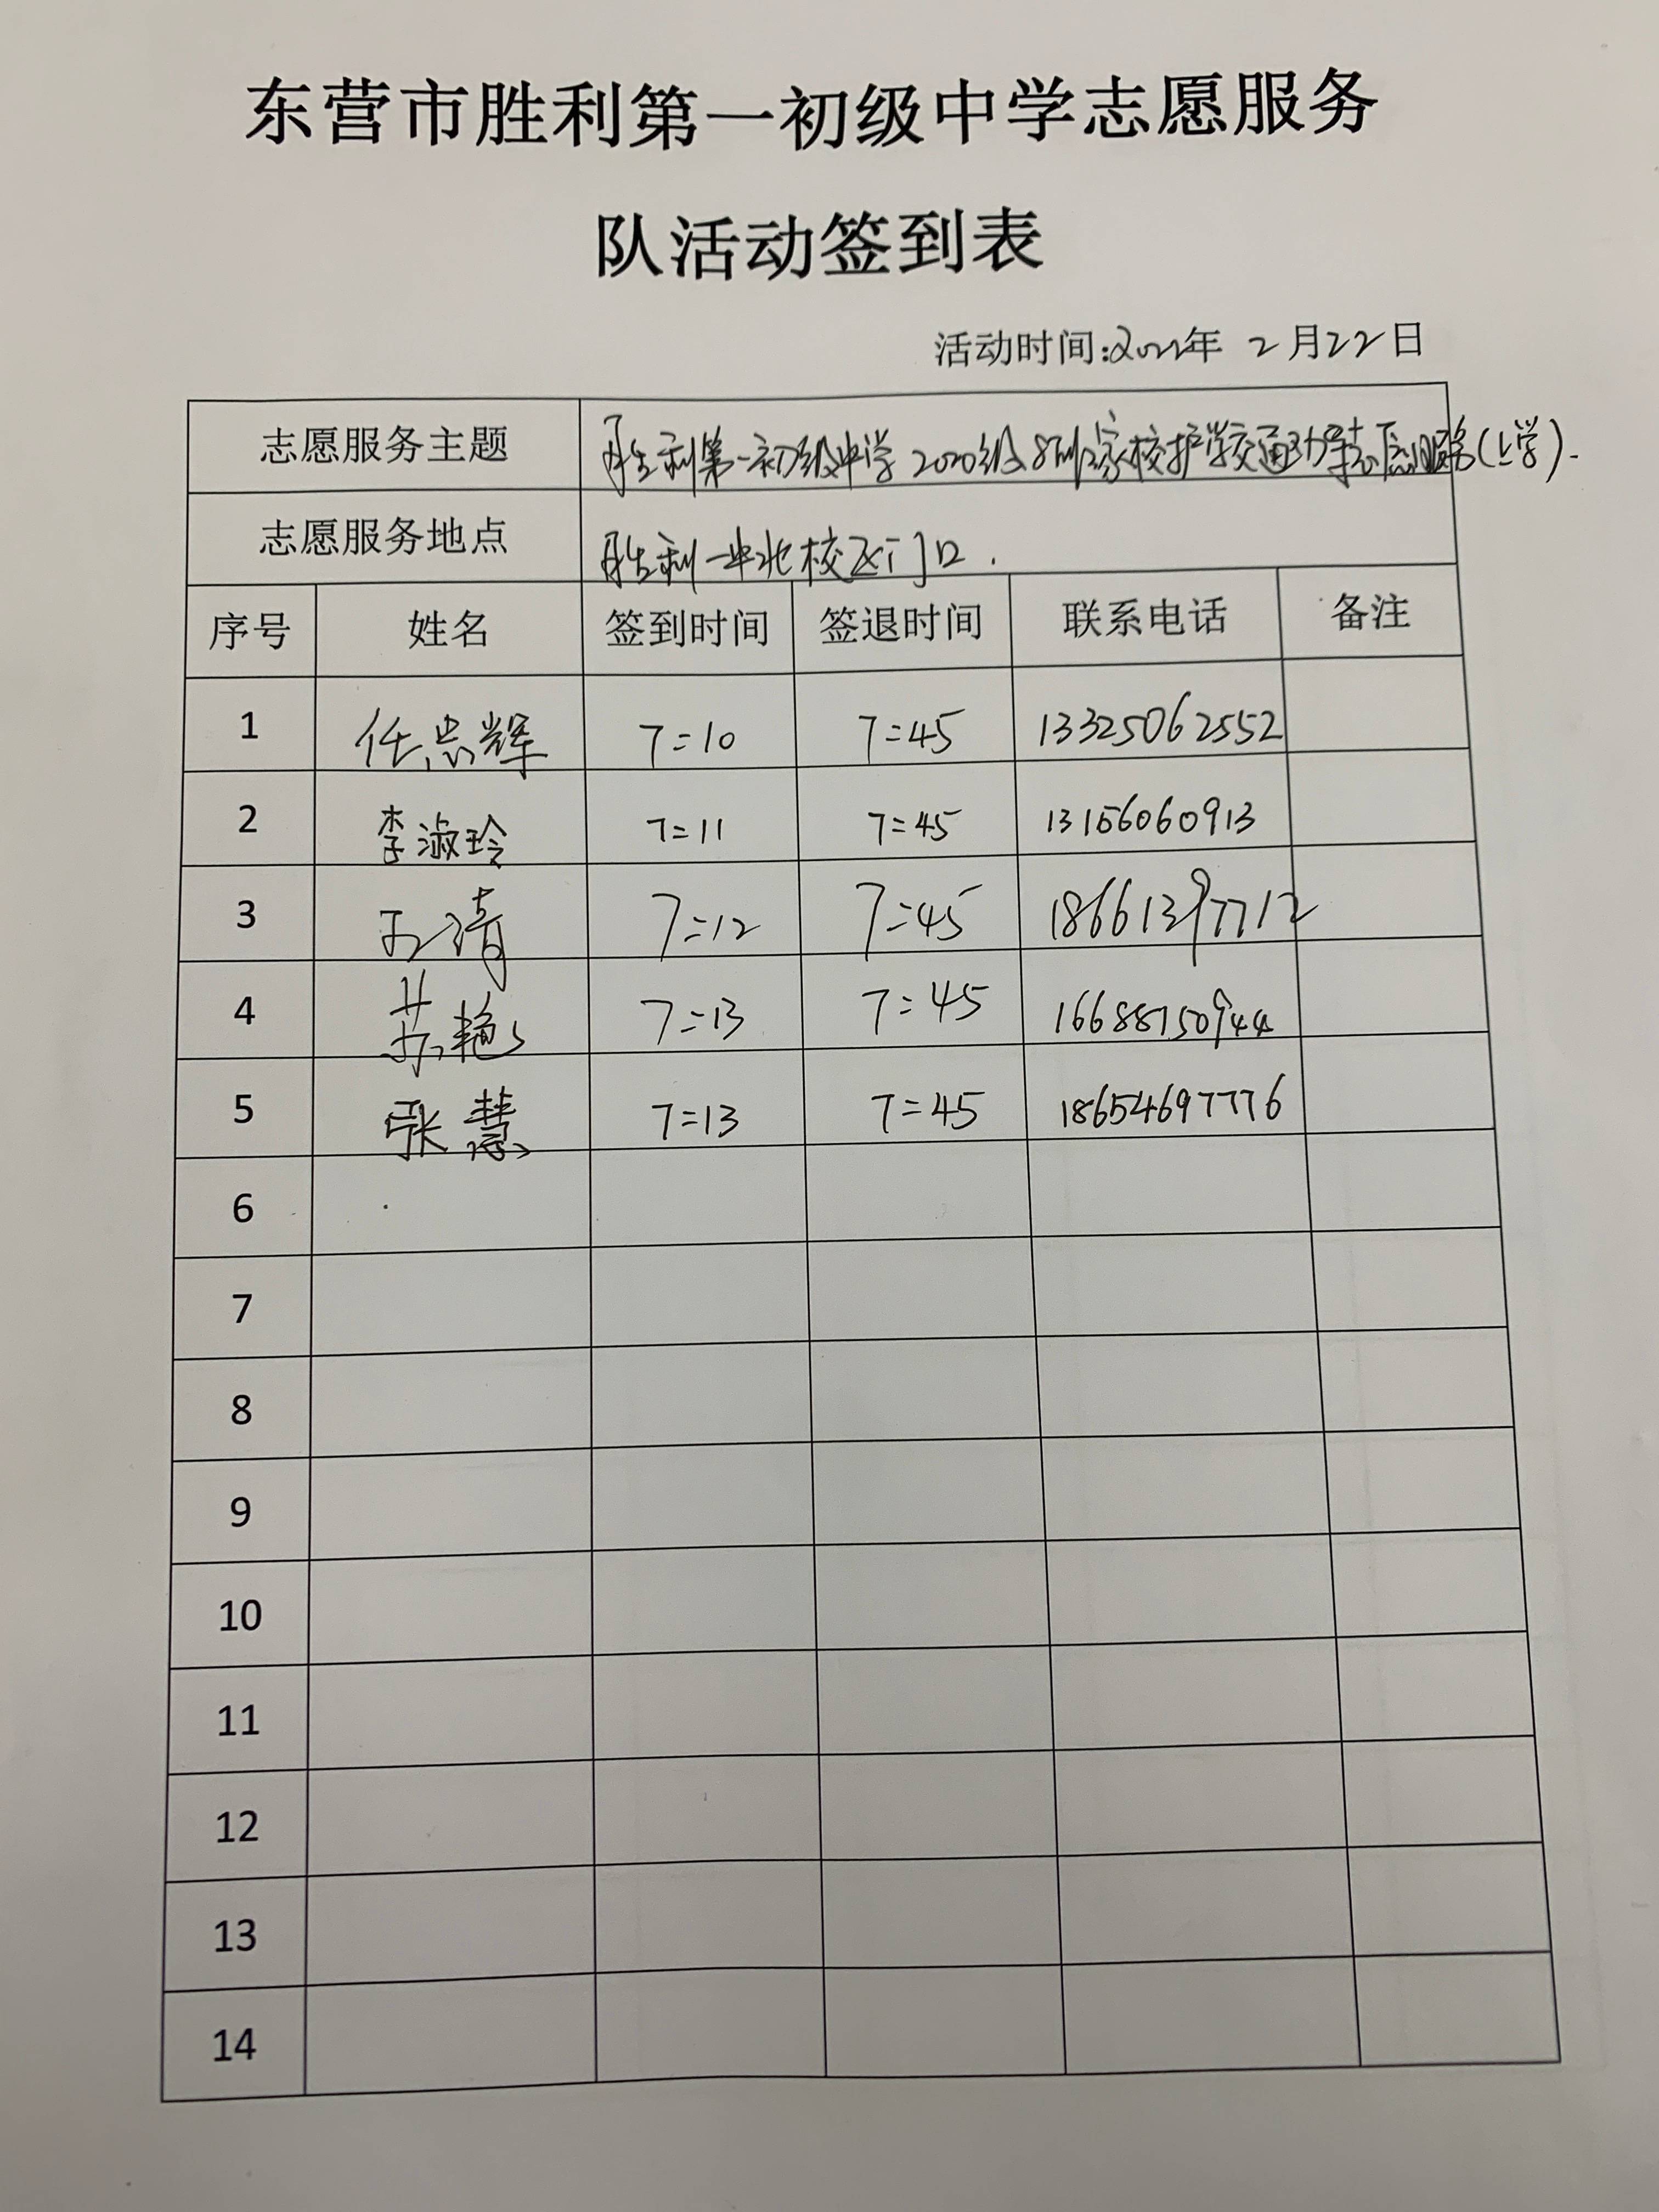 东营市胜利第一初级中学志愿服务
队活动签到表
活动时间:2022年 2月22日
志愿服务主题 胜利第一初级中学2020级8班家校护学交通助学志愿服务(上学).
志愿服务地点 胜利一中北校区门口.
序号 姓名 签到时间 签退时间 联系电话 备注
1 任忠辉 7:10 7:45 13325062552
2 李淑玲 7:11 7:45 13156060913
3 王清 7:12 7:45 18661397712
4 苏艳 7:13 7:45 16688750944
5 张慧 7:13 7:45 18654697776
6
7
8
9
10
11
12
13
14